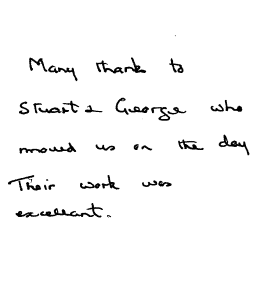 Many thanks to
Stuart & George who
moved us on the day
Their work was
excellant.